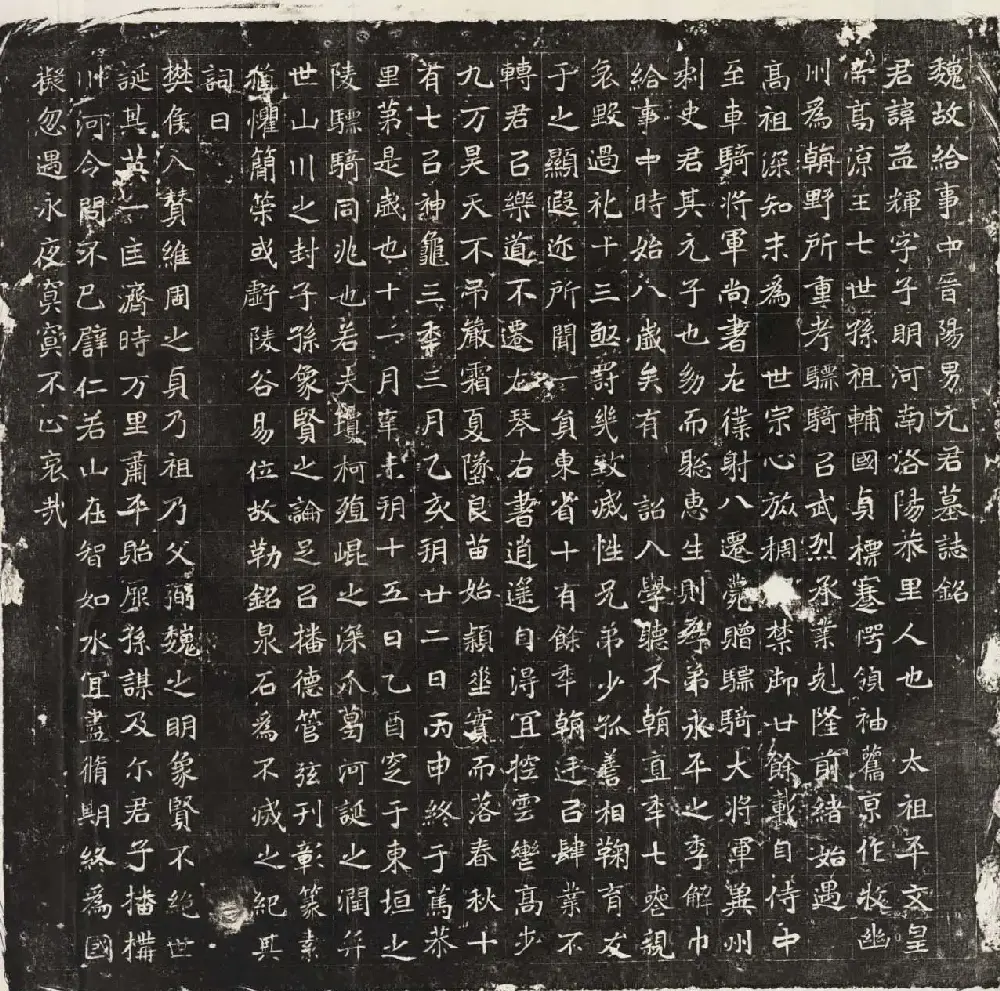 魏故給事中晉陽男元君墓誌銘
君諱益輝字子明河南洛陽熙里人也 太祖平文皇
帝高涼王七世孫祖輔國貞標謇愕領袖舊京作牧幽
川為朝野所重考驃騎以武烈承業剋隆前緒始遇
高祖深知末為 世宗心旅稠 禁御廿餘載自侍中
至車騎將軍尚書左僕射八遷薨贈驃騎大將軍冀州
刺史君其元子也幼而聡恵生則孝弟永平之季解巾
給事中時始八歲矣有 詔入學聽不朝直年七喪親
哀毀過礼十三 罸幾致滅性兄弟少孤善相鞠育友
于之顯遐迩所聞一負東省十有餘年朝
以肆業不
轉君以樂道不遷左琴右書逍遥自得冝控雲轡高步
九万昊天不吊嚴霜夏墜良苗始頴 實而落春秋十
有七以神龜三秊三月乙亥朔廿二日丙申終于篤恭
里第是歲也十一月辛未朔十五日乙酉窆于東垣之
陵驃騎同兆也若夫壇柯殖崐之深 葛河誕之潤并
世山川之封子孫象賢之論足以播德管弦刊彰篆素
猶懼簡筞或虧陵谷易位故勒銘泉石為不滅之紀其
詞曰
樊侯入賛維周之貞乃祖乃父弼魏之明象賢不絶世
誕其英一匡濟時万里肅平貽厥孫謀及尒君子播構
川河令問不已磨仁若山在智如水冝盡脩期終為國
擬忽遇永夜冥寞不心哀㢤